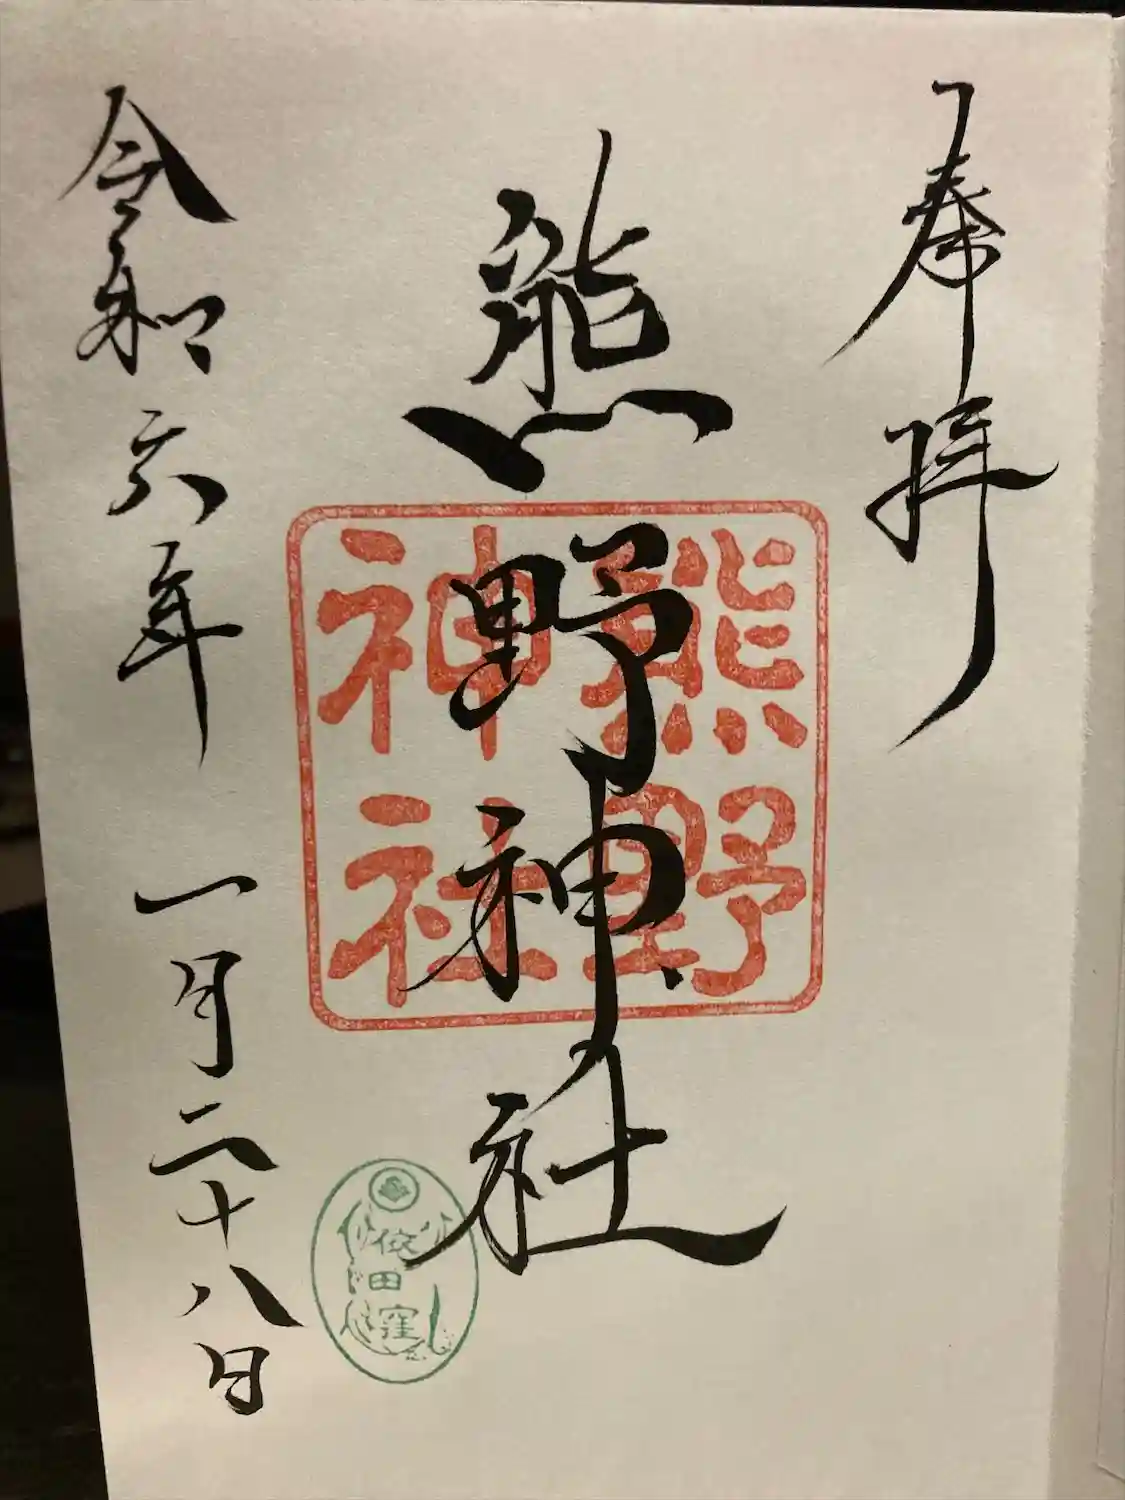 奉拝
熊野神社
熊野
神社
依田窪
令和六年 一月二十八日